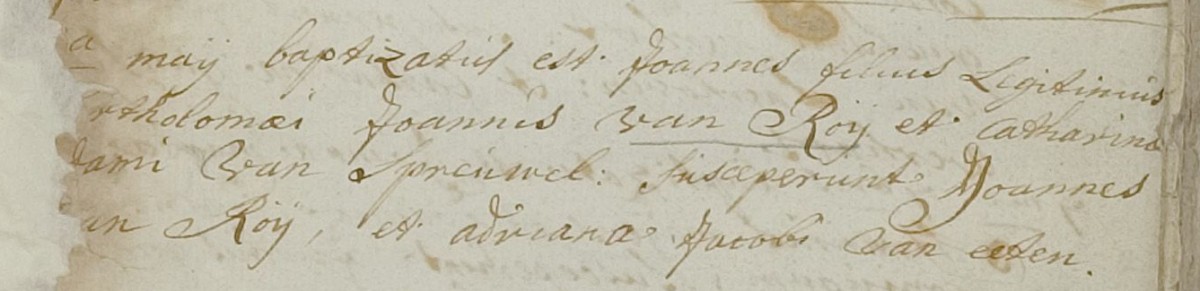 a maij baptizatus est Joannes filius Legitimus
rtholomæi Joannis van Roÿ et Catharina
dami van Spreuwel: susceperunt Joannes
an Roÿ, et adriana Jacobi van eeten.